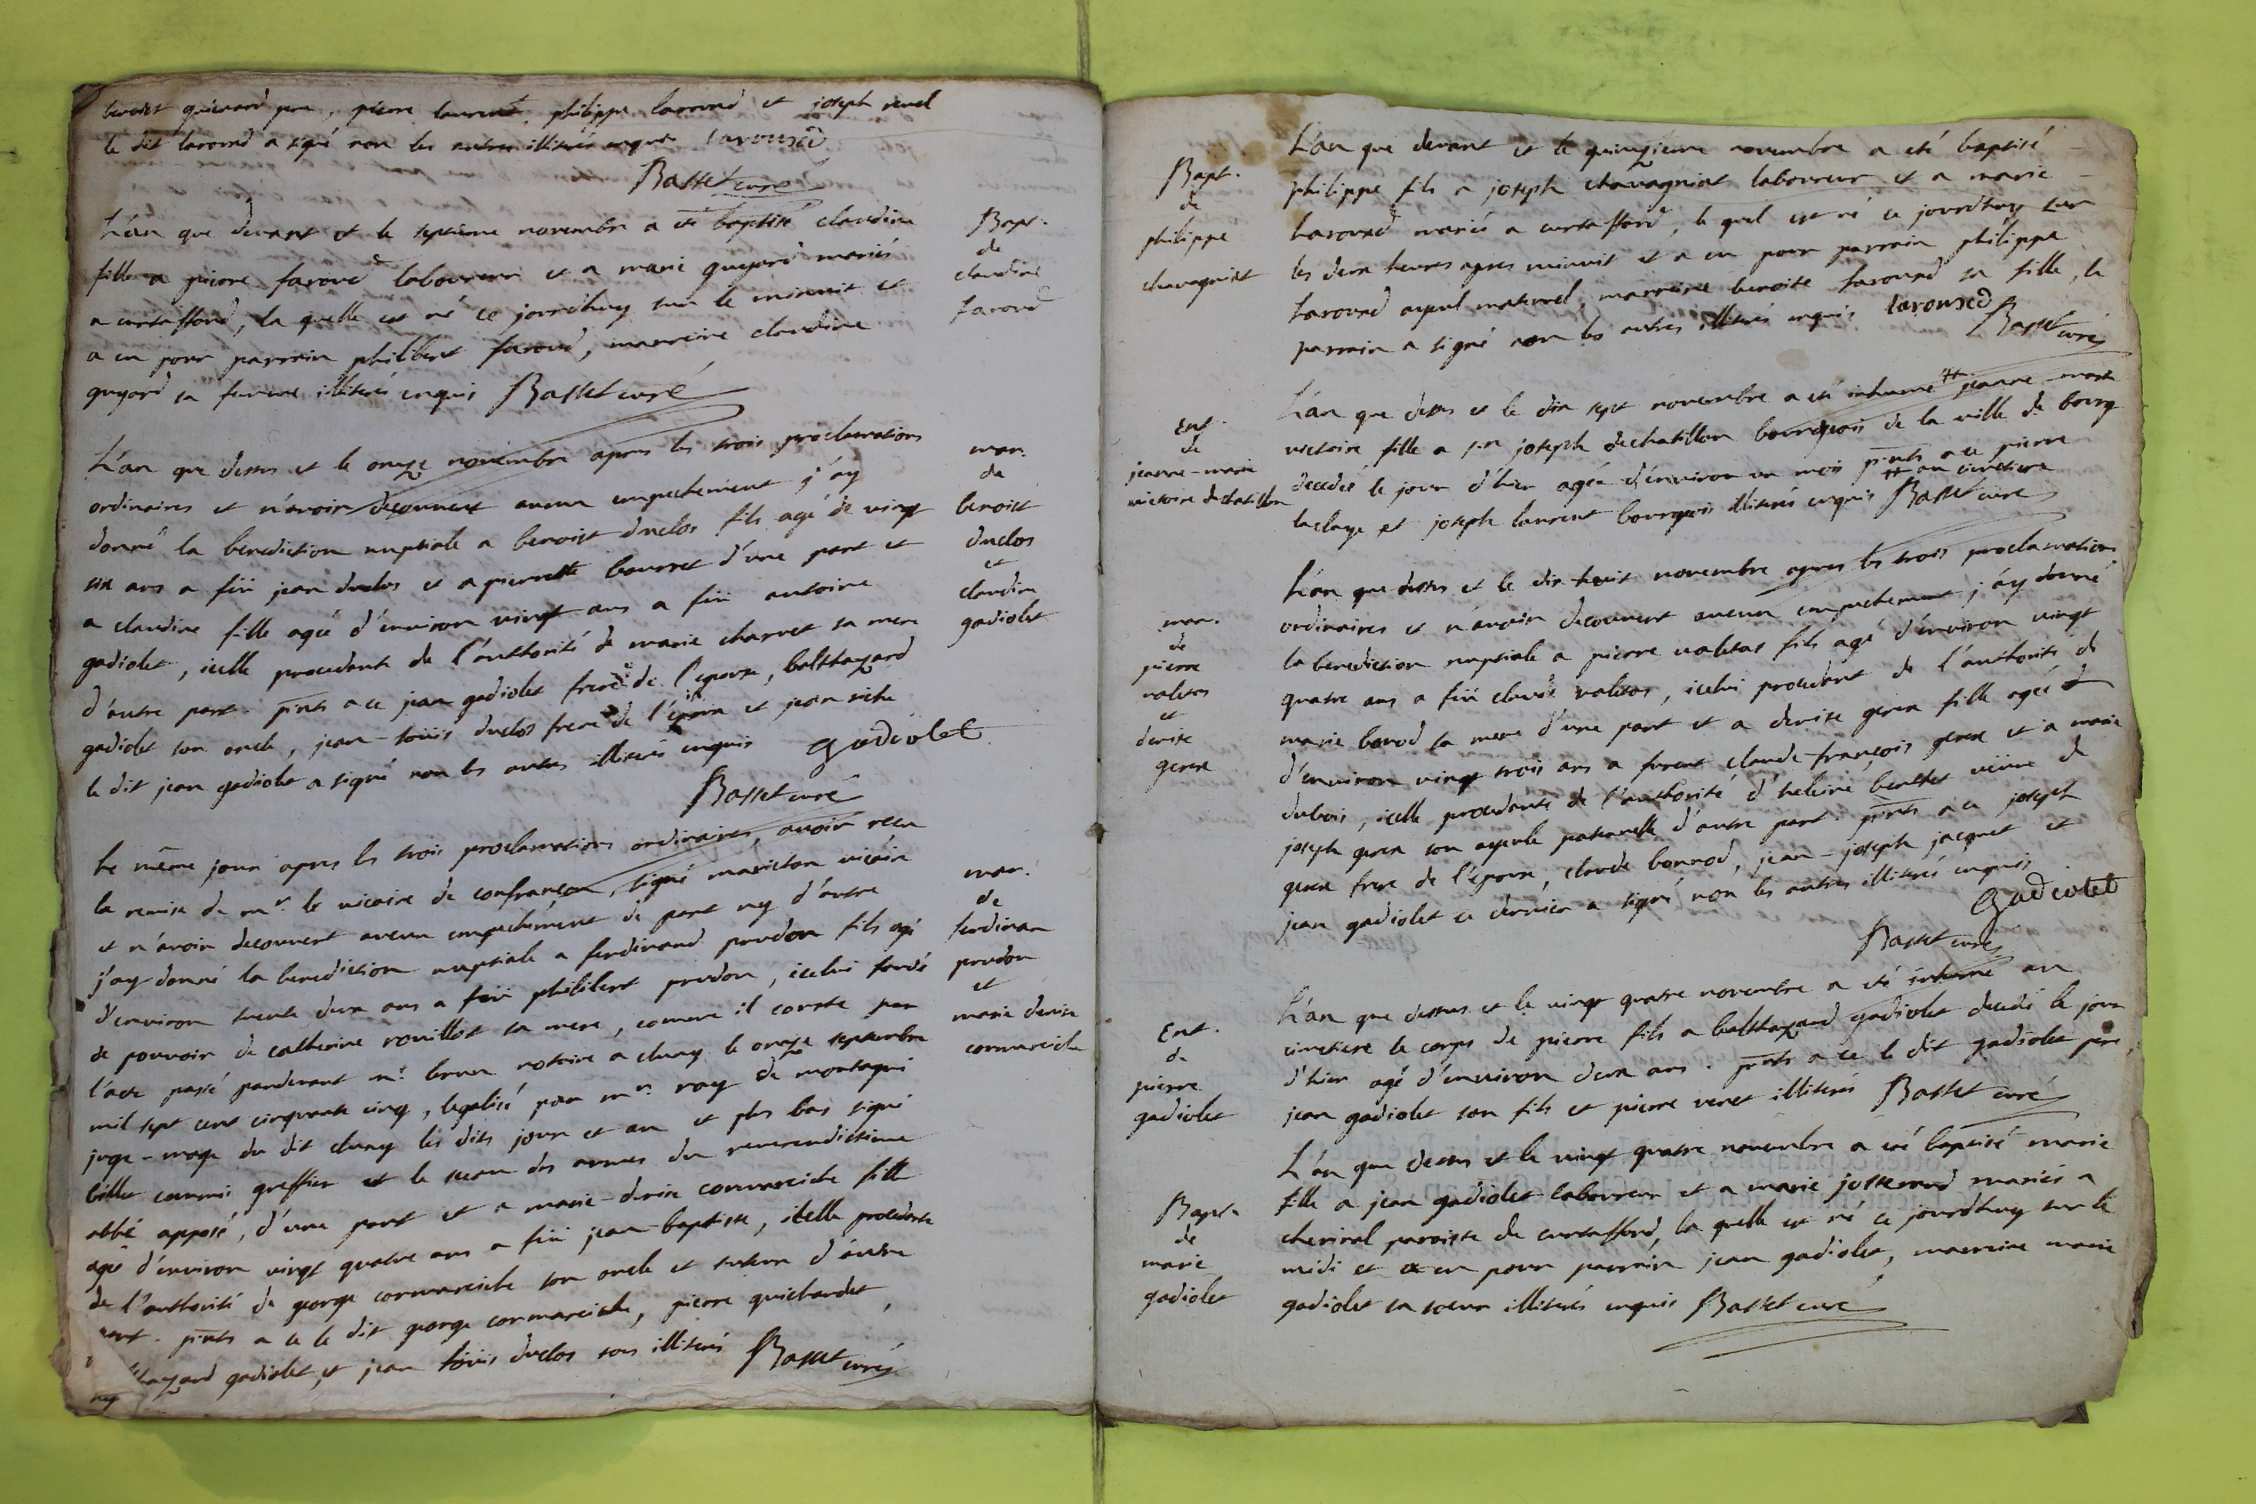 benoist guicnard pre, pierre laurent, philippe larourd et joseph revel
le dit larourd a signé non les autres illiterés enquis larourd
Basset curé
L'an que devant et le septieme novembre a eté baptisé claudine
fille a pierre faroud laboureur et a marie guyard mariés
a curtaffond, la quelle est né ce jourdhuy sur le minuit et
a eu pour parrain philibert faroud, marreine claudine
guyard sa femme illiterés enquis Basset curé
Bapt.
de
claudine
faroud
L'an que dessus et le onze novembre apres les trois proclamations
ordinaires et n'avoir decouvert aucun empechement j'ay
donné la benediction nuptiale a benoist duclos fils agé de vingt
six ans a fëü jean duclos et a pierrette bourret d'une part et
a claudine fille agée d'environ vingt ans a fëü antoine
gadiolet, icelle procedante de l'authorité de marie charvet sa mere
d'autre part. pnts a ce jean gadiolet frere de l'epouse, balthazard
gadiolet son oncle, jean-loüis duclos frere de l'epoux et jean riche
le dit jean gadiolet a signé non les autres illiterés enquis Gadiolet
Basset curé
mar.
de
benoist
duclos
et
claudine
gadiolet
Le même jour apres les trois proclamations ordinaires, avoir recu
la remise de mr. le vicaire de confrançon, signé maricton vicair
et n'avoir decouvert aucun empechement de part ny d'autre
j'ay donné la benediction nuptiale a ferdinand prudon fils agé
d'environ trente deux ans a fëü philibert prudon, icelui fondé
de pouvoir de catherine rouillot sa mere, comme il conste par
l'acte passé pardevant me. brun notaire a cluny le onze septembre
mil sept cent cinquante cinq, legalisé par mr. roy de montagni
juge-mage du dit cluny les dits jour et an et plus bas signé
billet commis greffier et le sceau des armes du reverendissime
abbé apposé, d'une part et a marie-denise cormareiche fille
agée d'environ vingt quatre ans a fëü jean-baptiste, icelle procedante
de l'authorité de george cormareiche son oncle et tuteur d'autre
part. pnts a ce le dit george cormareiche, pierre guichardet,
gadiolet, et jean loüis duclos tous illiterés Basset curé
mar.
de
ferdinan
prudon
et
marie denise
cormareiche
Bapt.
de
philippe
chavagniat
L'an que devant et le quinzieme novembre a eté baptisé
philippe fils a joseph chavagniat laboureur et a marie
larourd mariés a curtaffond, le quel est né ce jourdhuy sur
les deux heures apres minuit et a eu pour parrain philippe
larourd ayeul maternel, marreine benoite larourd sa fille, le
parrain a signé non les autres illiterés enquis larourd
Basset curé
Ent.
de
jeanne-marie
victoire dechatillon
L'an que dessus et le dix sept novembre a eté inhumé # jeanne-marie
victoire fille a sr. joseph dechatillon bourgeois de la ville de bourg
decedée le jour d'hier agée d'environ un mois pnts a ce pierre
# au cimetiere
laclaye et joseph laurent bourgeois illiterés enquis Basset curé
mar.
de
pierre
valetas
et
denise
gerex
L'an que dessus et le dix-huit novembre apres les trois proclamations
ordinaires et n'avoir decouvert aucun empechement j'ay donné
la benediction nuptiale a pierre valetas fils agé d'environ vingt
quatre ans a fëü claude valetas, icelui procedant de l'authorité de
marie borod sa mere d'une part et a denise gerex fille agée
d'environ vingt trois ans a furent claude françois gerex et a marie
dubois, icelle procedante de l'authorité d'heleine bertet veuve de
joseph gerex son ayeule paternelle d'autre part. pnts a ce joseph
gerex frere de l'epouse, claude bonnod, jean-joseph jacquet et
jean gadiolet ce dernier a signé non les autres illiterés enquis
Gadiolet
Basset curé
Ent.
de
pierre
gadiolet
L'an que dessus et le vingt quatre novembre a eté inhumé au
cimetiere le corps de pierre fils a balthazard gadiolet decedé le jour
d'hier agé d'environ deux ans. pnts a ce le dit gadiolet pere,
jean gadiolet son fils et pierre veret illiterés Basset curé
Bapt.
de
marie
gadiolet
L'an que dessus et le vingt quatre novembre a eté baptisé marie
fille a jean gadiolet laboureur et a marie josserand mariés a
cherinal paroisse de curtaffond, la quelle est né ce jourdhuy sur le
midi et a eu pour parrain jean gadiolet, marreine marie
gadiolet sa soeur illiterés enquis Basset curé